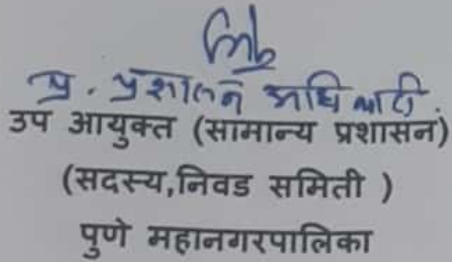 प्र. प्रशासन अधिकारी.
उप आयुक्त (सामान्य प्रशासन)
(सदस्य,निवड समिती )
पुणे महानगरपालिका